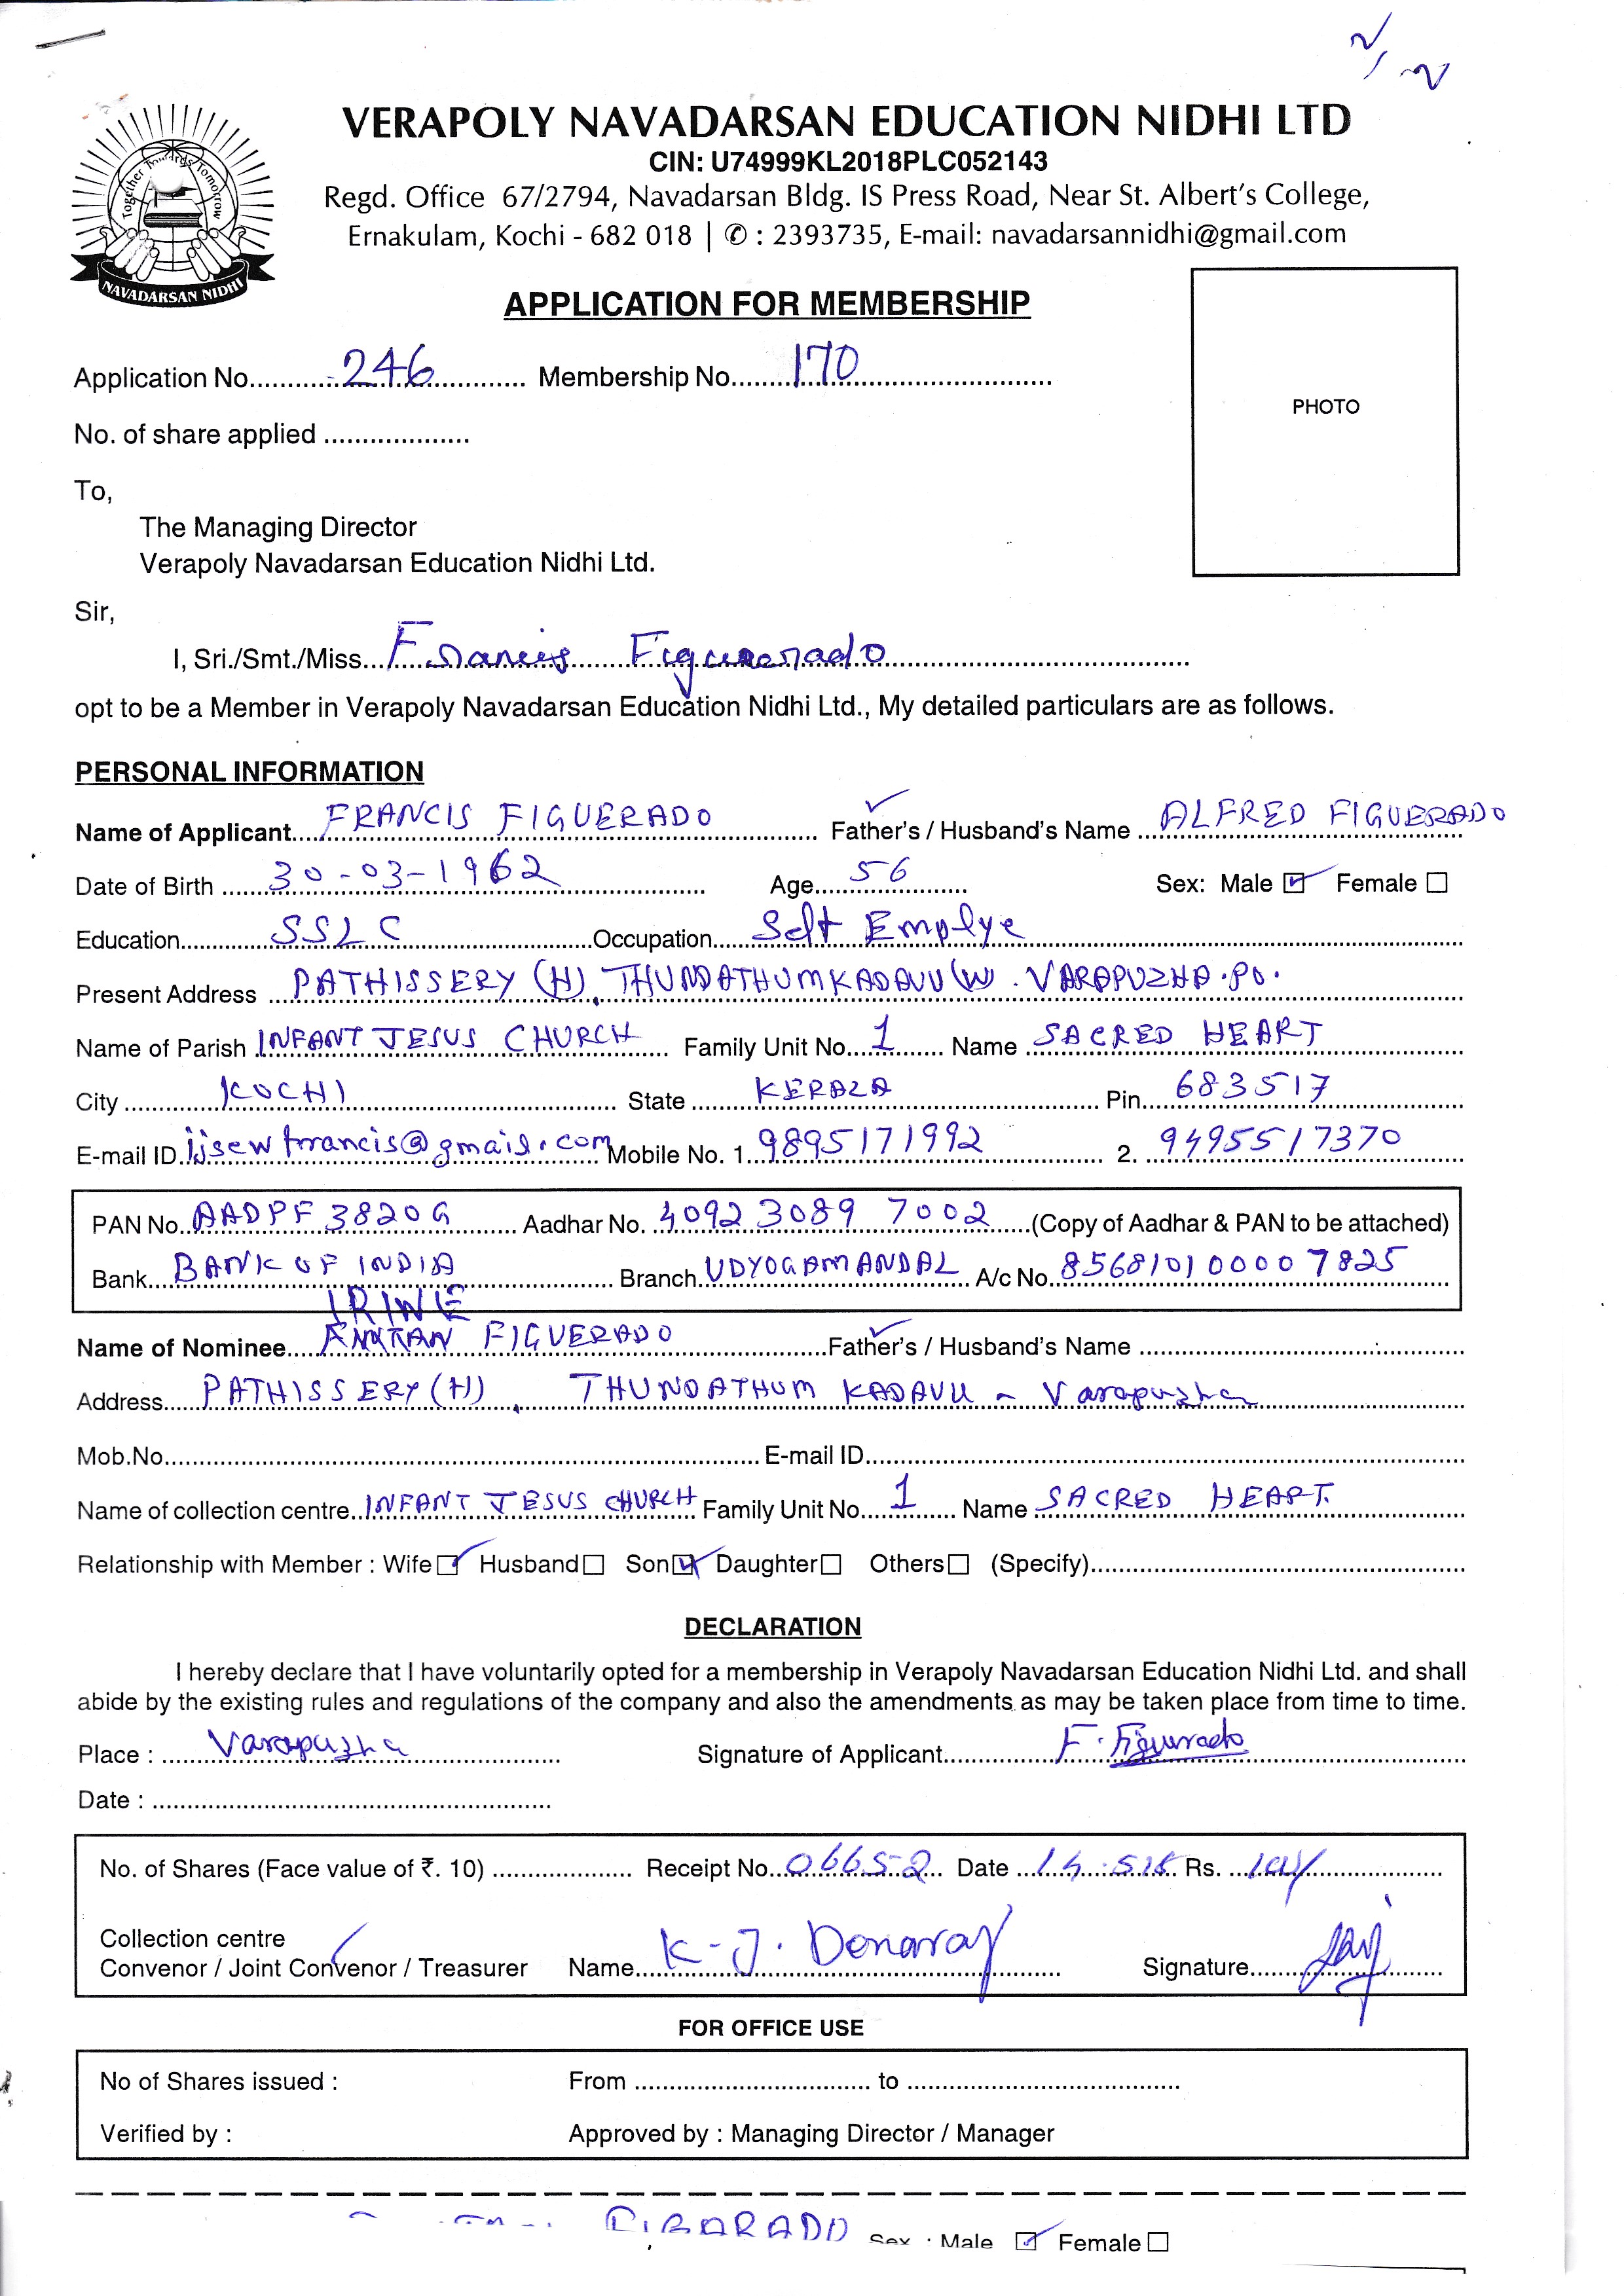 VERAPOLY NAVADARSAN EDUCATION NIDHI LTD
CIN: U74999KL2018PLC052143
Regd. Office 67/2794, Navadarsan Bldg. IS Press Road, Near St. Albert's College,
Ernakulam, Kochi - 682 018 | ✆ : 2393735, E-mail: navadarsannidhi@gmail.com
Together Towards Tomorrow
NAVADARSAN NIDHI
APPLICATION FOR MEMBERSHIP
Application No. 246 Membership No. 170
PHOTO
No. of share applied
To,
The Managing Director
Verapoly Navadarsan Education Nidhi Ltd.
Sir,
I, Sri./Smt./Miss. Francis Figuerado
opt to be a Member in Verapoly Navadarsan Education Nidhi Ltd., My detailed particulars are as follows.
PERSONAL INFORMATION
Name of Applicant FRANCIS FIGUERADO Father's / Husband's Name ALFRED FIGUERADO
Date of Birth 30-03-1962 Age 56 Sex: Male ☑ Female ☐
Education SSLC Occupation Self Emplye
Present Address PATHISSERY (H), THUNDATHUMKADAVU (W). VARAPUZHA.PO.
Name of Parish INFANT JESUS CHURCH Family Unit No. 1 Name SACRED HEART
City KOCHI State KERALA Pin 683517
E-mail ID ijsewfrancis@gmail.com Mobile No. 1. 9895171992 2. 9495517370
PAN No. AADPF3820G Aadhar No. 4092 3089 7002 (Copy of Aadhar & PAN to be attached)
Bank BANK OF INDIA Branch UDYOGAMANDAL A/c No. 856810100007825
Name of Nominee FIGUERADO Father's / Husband's Name
Address PATHISSERY (H), THUNDATHUM KADAVU - Varapuzha
Mob.No. E-mail ID
Name of collection centre INFANT JESUS CHURCH Family Unit No. 1 Name SACRED HEART.
Relationship with Member : Wife ☑ Husband ☐ Son ☑ Daughter ☐ Others ☐ (Specify)
DECLARATION
I hereby declare that I have voluntarily opted for a membership in Verapoly Navadarsan Education Nidhi Ltd. and shall
abide by the existing rules and regulations of the company and also the amendments as may be taken place from time to time.
Place : Varapuzha Signature of Applicant F. Figuerado
Date :
No. of Shares (Face value of ₹. 10) Receipt No. 06652 Date Rs.
Collection centre
Convenor / Joint Convenor / Treasurer Name K-J. Donaray Signature
FOR OFFICE USE
No of Shares issued : From to
Verified by : Approved by : Managing Director / Manager
Sex : Male ☑ Female ☐